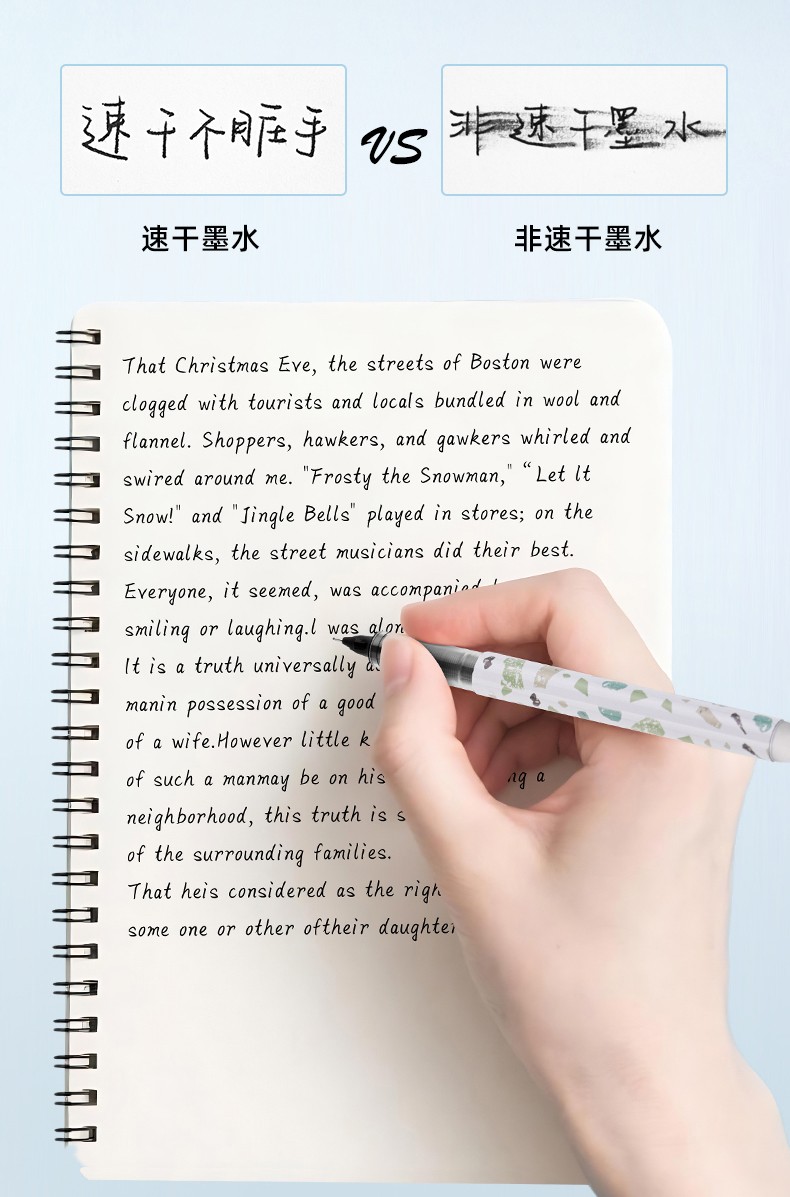 速干不脏手
VS
非速干墨水
速干墨水
非速干墨水
That Christmas Eve, the streets of Boston were
clogged with tourists and locals bundled in wool and
flannel. Shoppers, hawkers, and gawkers whirled and
swired around me. "Frosty the Snowman," “Let lt
Snow!" and "Jingle Bells" played in stores; on the
sidewalks, the street musicians did their best.
Everyone, it seemed, was accompanied
smiling or laughing.l was
It is a truth universally
manin possession of a good
of a wife.However little
of such a manmay be on his a
neighborhood, this truth is
of the surrounding families.
That heis considered as the
some one or other oftheir